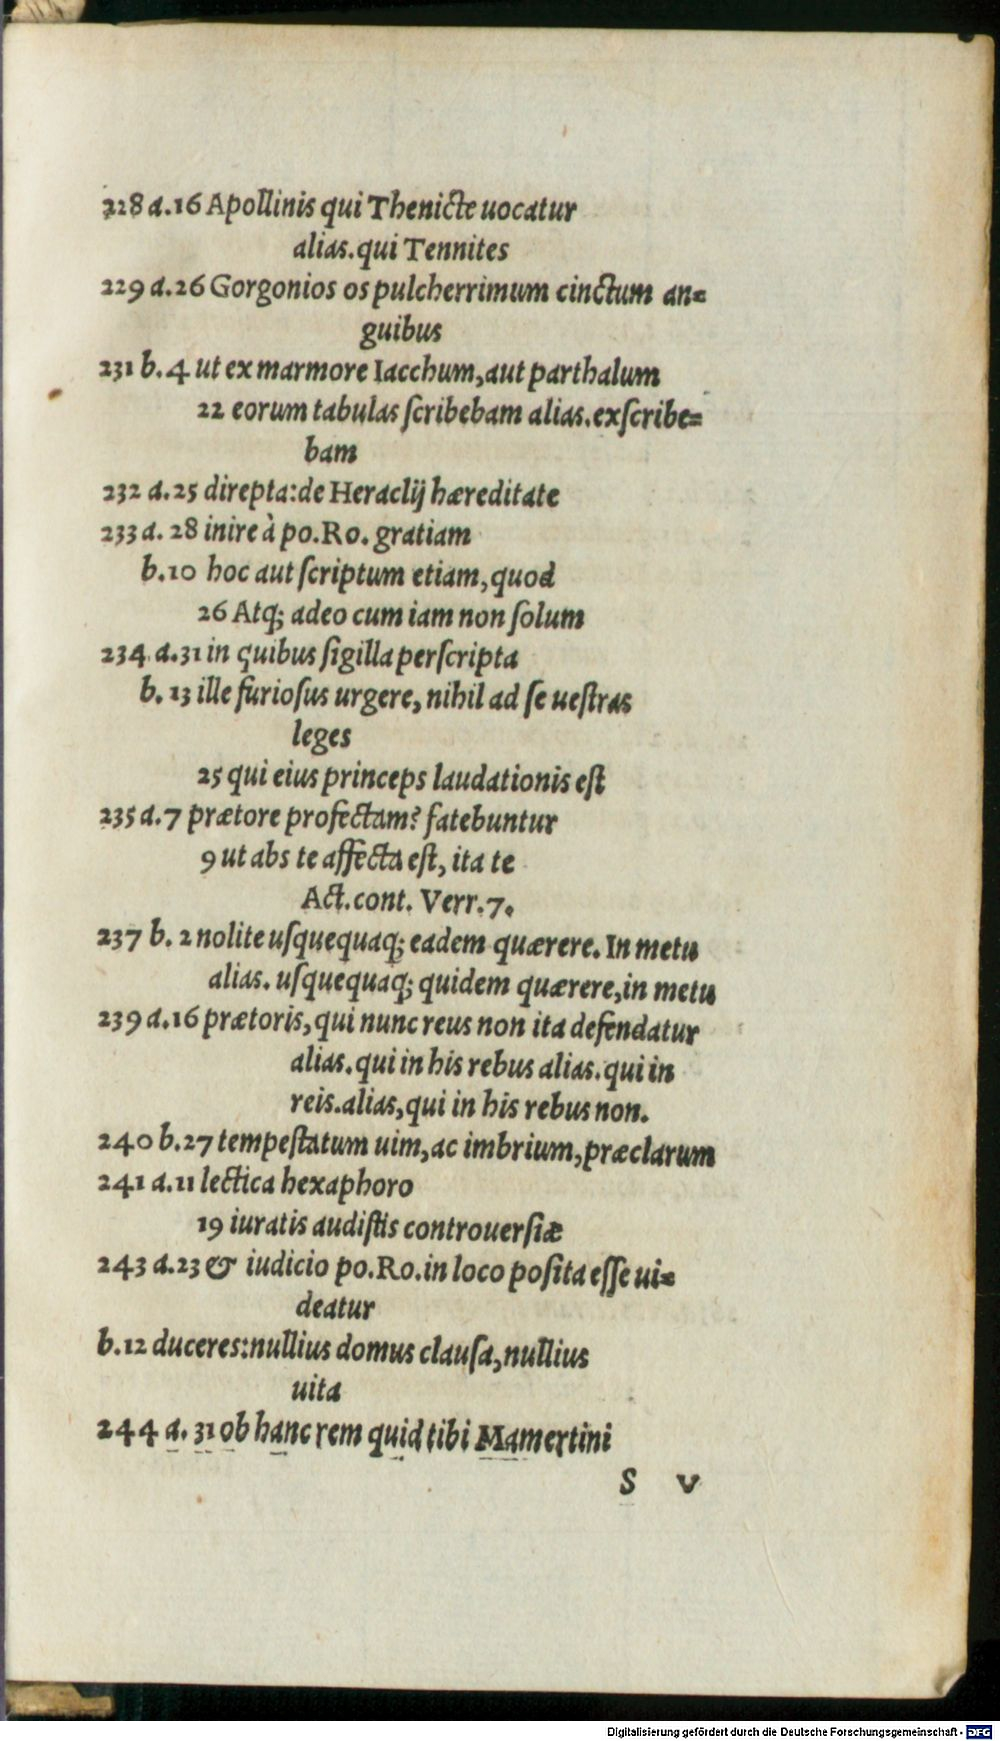 228 a.16 Apollinis qui Thenicte uocatur
alias.qui Tennites
229 a.26 Gorgonios os pulcherrimum cinctum an=
guibus
231 b.4 ut ex marmore Iacchum,aut parthalum
22 eorum tabulas ſcribebam alias.exſcribe=
bam
232 a.25 direpta:de Heraclij hæreditate
233 a. 28 inire à po.Ro. gratiam
b.10 hoc aut ſcriptum etiam,quod
26 Atq; adeo cum iam non ſolum
234 a.31 in quibus ſigilla perſcripta
b. 13 ille furioſus urgere, nihil ad ſe ueſtras
leges
25 qui eius princeps laudationis eſt
235 a.7 prætore profectam? fatebuntur
9 ut abs te affecta eſt, ita te
Act.cont. Verr.7.
237 b. 2 nolite uſquequaq; eadem quærere. In metu
alias. uſquequaq; quidem quærere,in metu
239 a.16 prætoris,qui nunc reus non ita defendatur
alias.qui in his rebus alias.qui in
reis.alias,qui in his rebus non.
240 b.27 tempeſtatum uim,ac imbrium,præclarum
241 a.11 lectica hexaphoro
19 iuratis audiſtis controuerſiæ
243 a.23 & iudicio po.Ro.in loco poſita eſſe ui=
deatur
b.12 duceres:nullius domus clauſa,nullius
uita
244 a. 31 ob hanc rem quid tibi Mamertini
S v
Digitalisierung gefördert durch die Deutsche Forschungsgemeinschaft - DFG